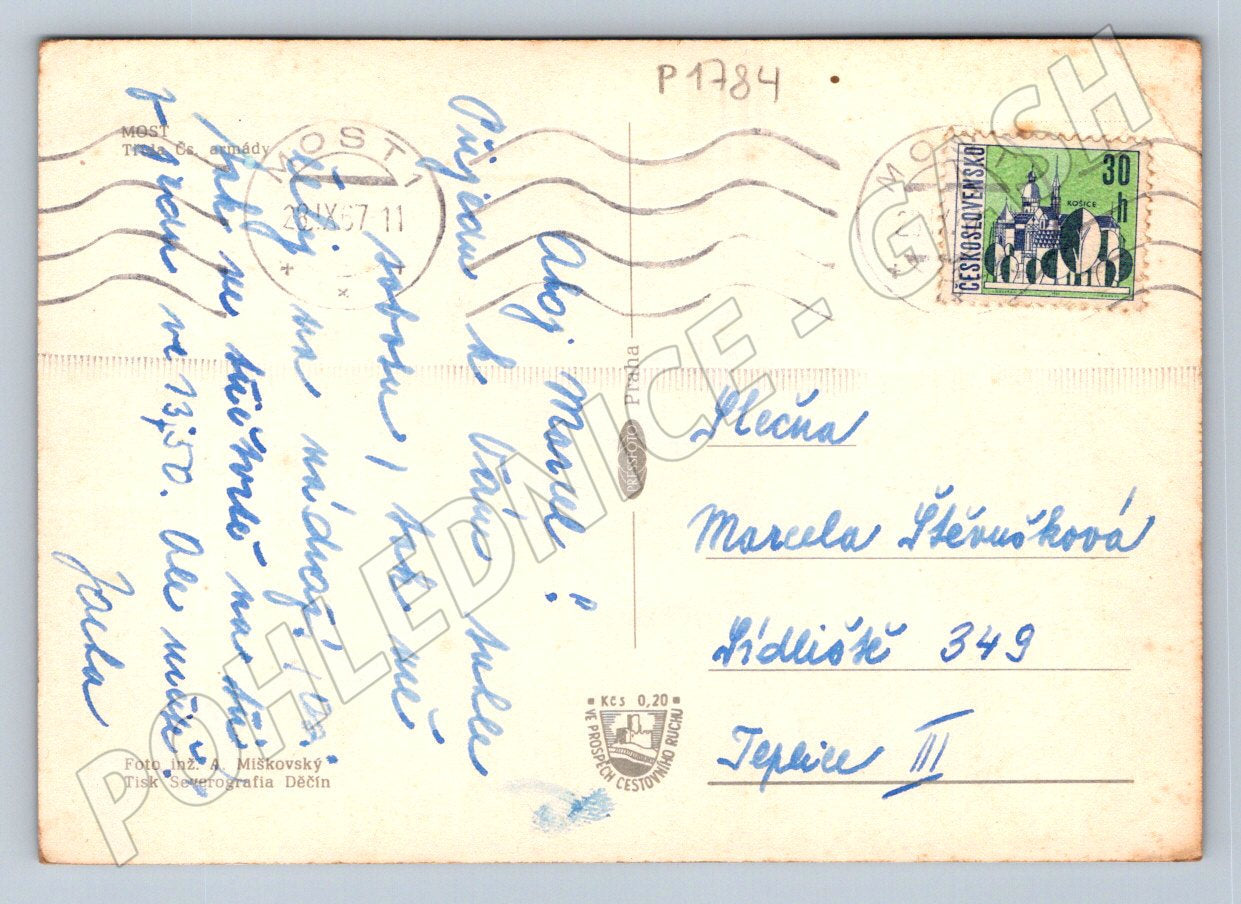 P1784
MOST
Třída Čs. armády
MOST 1
28.IX.67 11
ČESKOSLOVENSKO
30 h
KOŠICE
Ahoj Marcel!
Přijedu k Vám tuhle
sobotu, tak mě
čekej na nádraží.
Jak ve
K Vám ve 13,50. Ale
Jarka
PRESSFOTO Praha
Slečna
Marcela Štěvušková
Sídliště 349
Teplice III
Kčs 0,20
VE PROSPĚCH CESTOVNÍHO RUCHU
Foto inž. A. Miškovský
Tisk Severografia Děčín
POHLEDNICE - GASH